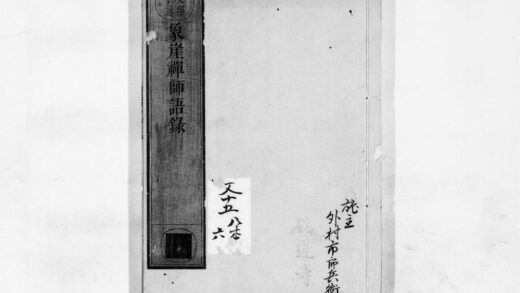 象崖禪師語錄
又十五
八本
六
施主
外村市郎兵衛